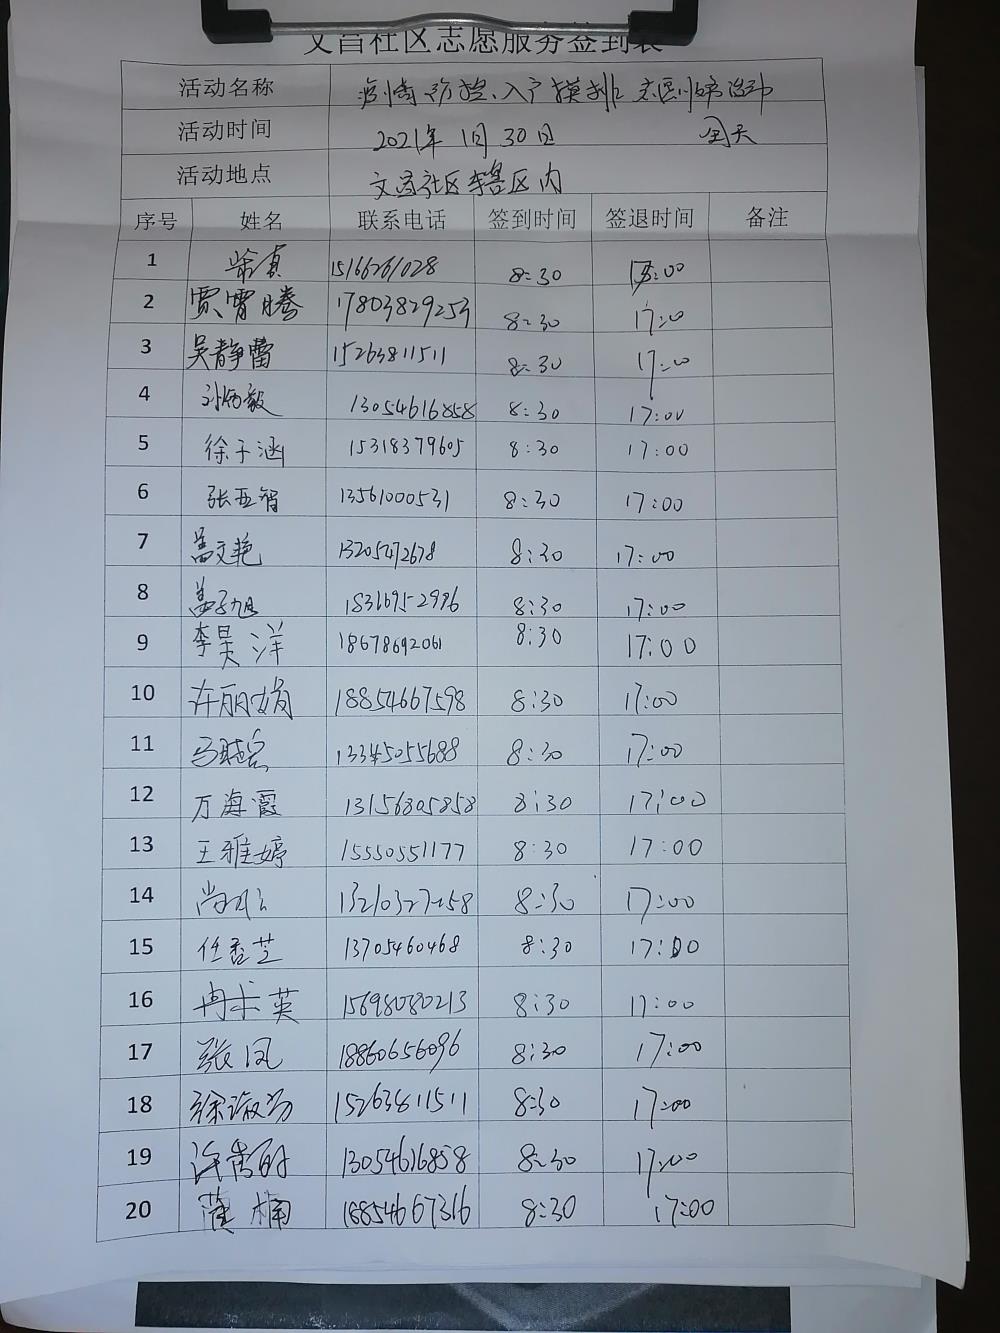 文昌社区志愿服务签到表
活动名称 疫情防控、入户摸排
活动时间 2021年1月30日 全天
活动地点 文昌社区辖区内
序号 姓名 联系电话 签到时间 签退时间 备注
1 柴真 15166261028 8:30 17:00
2 贾霄腾 17803829253 8:30 17:00
3 吴静蕾 15263811511 8:30 17:00
4 13054616858 8:30 17:00
5 徐子涵 15318379605 8:30 17:00
6 张亚智 13561000531 8:30 17:00
7 盖文艳 13205472678 8:30 17:00
8 8:30 17:00
9 李昊洋 18678692061 8:30 17:00
10 许丽娟 18854667598 8:30 17:00
11 13345055688 8:30 17:00
12 万海霞 13156805858 8:30 17:00
13 王雅婷 15550551177 8:30 17:00
14 8:30 17:00
15 任香芝 13705460468 8:30 17:00
16 15698080213 8:30 17:00
17 张凤 18860656096 8:30 17:00
18 15263811511 8:30 17:00
19 13054616858 8:30 17:00
20 18854667316 8:30 17:00